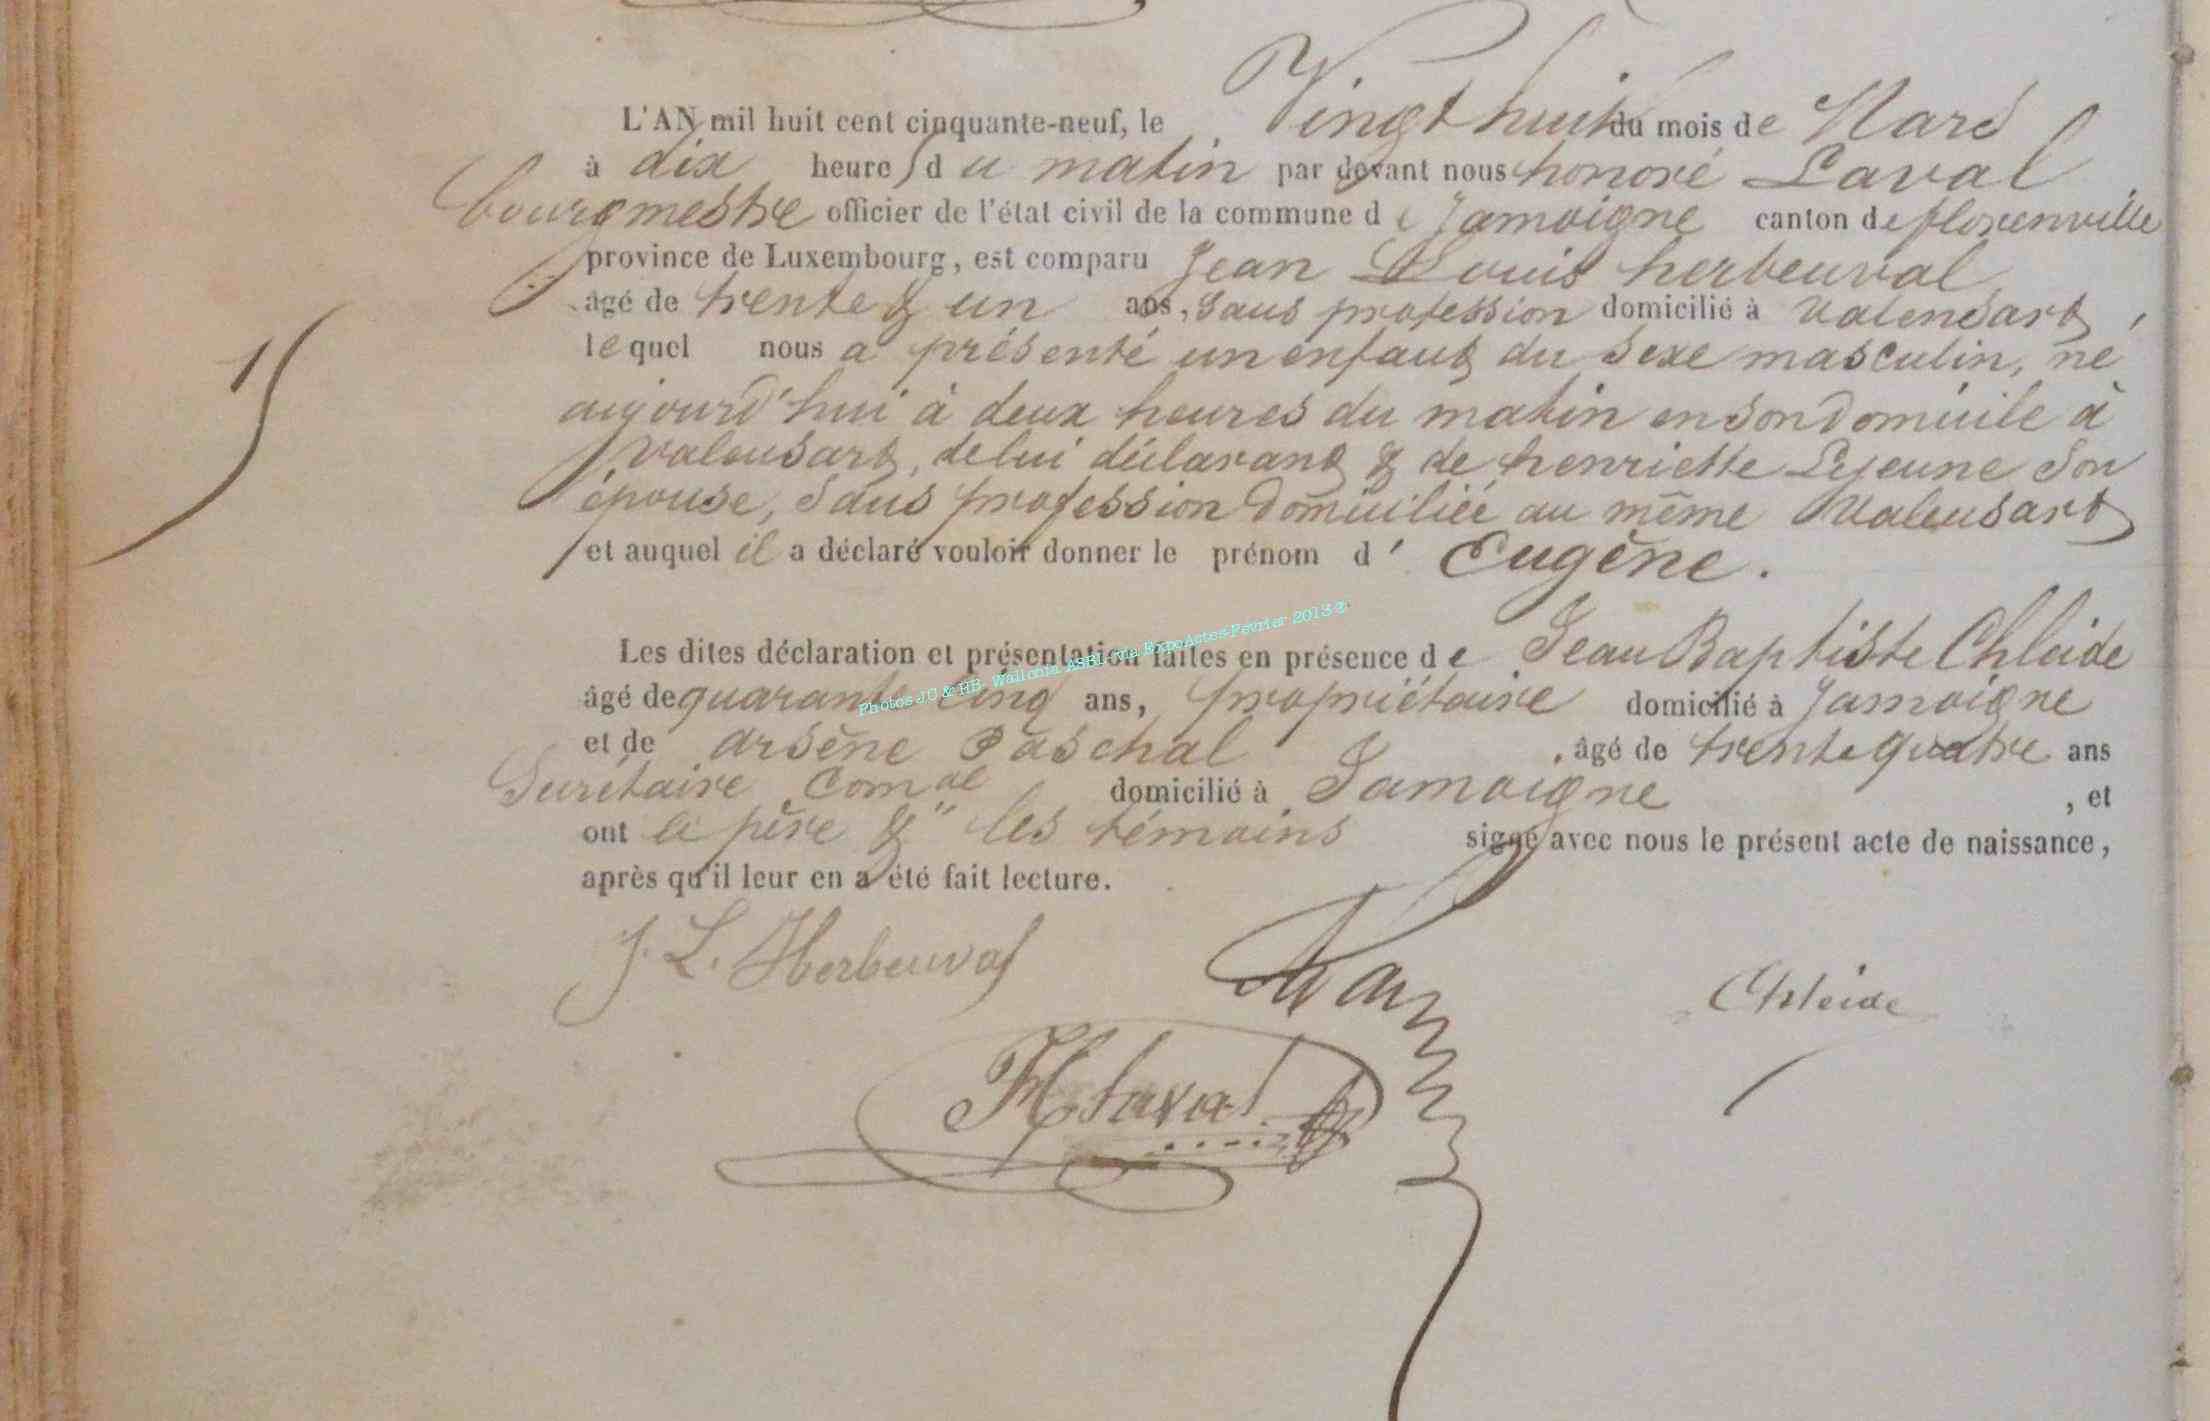 L'AN mil huit cent cinquante-neuf, le Vingt huit du mois de Mars
à dix heures du matin par devant nous honoré Laval
bourgmestre officier de l'état civil de la commune de Jamoigne canton de florenville
province de Luxembourg, est comparu Jean Louis herbeuval
âgé de trente & un ans, sans profession domicilié à Valensart,
lequel nous a présenté un enfant du sexe masculin, né
aujourd'hui à deux heures du matin en son domicile à
Valensart, de lui déclarant & de henriette Lejeune son
épouse, sans profession domiciliée au même Valensart
et auquel il a déclaré vouloir donner le prénom d' Eugène.
Les dites déclaration et présentation faites en présence de Jean Baptiste Chleide
âgé de quarante cinq ans, propriétaire domicilié à Jamoigne
et de arsène Paschal, âgé de trente quatre ans
Secrétaire Comal domicilié à Jamoigne, et
ont le père & les témoins signé avec nous le présent acte de naissance,
après qu'il leur en a été fait lecture.
J. L. Herbeuval
Chleide
H Laval
Photos JC & HB- Wallonia ASBL via ExpoActes-Février 2013-2